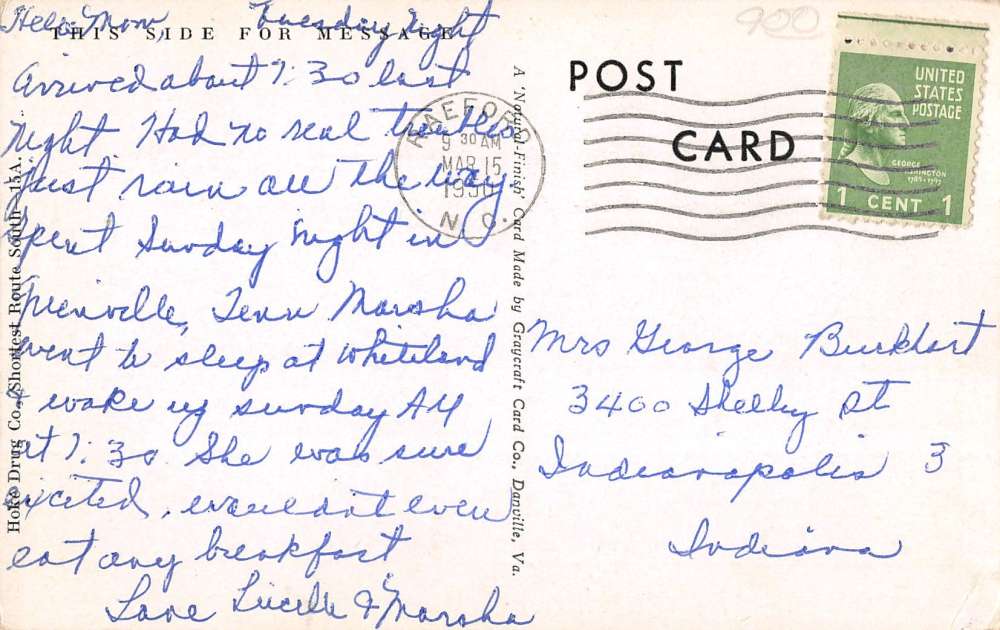 Hello Mom, Tuesday Night
THIS SIDE FOR MESSAGE
Arrived about 7:30 last
Night. Had no real troubles
Just rain all the way.
Spent Sunday Night in
Greenville, Tenn Marsha
went to sleep at Whiteland
& woke up sunday AM
at 7:30. She was sure
excited, wouldnt even
eat any breakfast
Love Lucille & Marsha
Hoke Drug Co., Shortest Route South—15A.
A 'Natural-Finish' Card Made by Graycraft Card Co., Danville, Va.
900
POST
CARD
RAEFORD
9 30 AM
MAR 15
N. C.
UNITED
STATES
POSTAGE
GEORGE
WASHINGTON
1789-1797
1 CENT 1
Mrs George Burkhart
3400 Shelby St
Indianapolis 3
Indiana